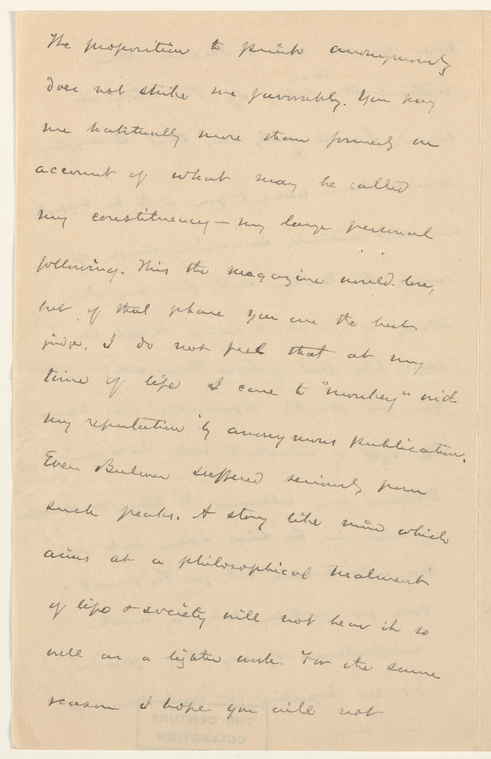 The proposition to print anonymously
does not strike me favorably. You pay
me habitually more than formerly on
account of what may be called
my constituency — my large personal
following. This the magazine would lose,
but of that phase you are the best
judge. I do not feel that at my
time of life I care to "monkey" with
my reputation by anonymous publication.
Even Bulwer suffered seriously from
such freaks. A story like mine which
aims at a philosophical treatment
of life & society will not bear it so
well as a lighter work. For the same
reason I hope you will not
THE CENTURY
COLLECTION